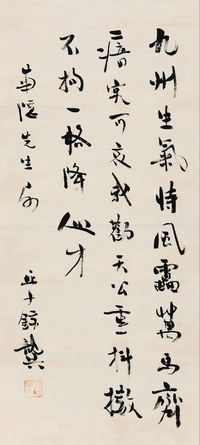 九州生氣恃風雷萬馬齊
瘖究可哀我勸天公重抖擻
不拘一格降人才
隱先生
錄龔